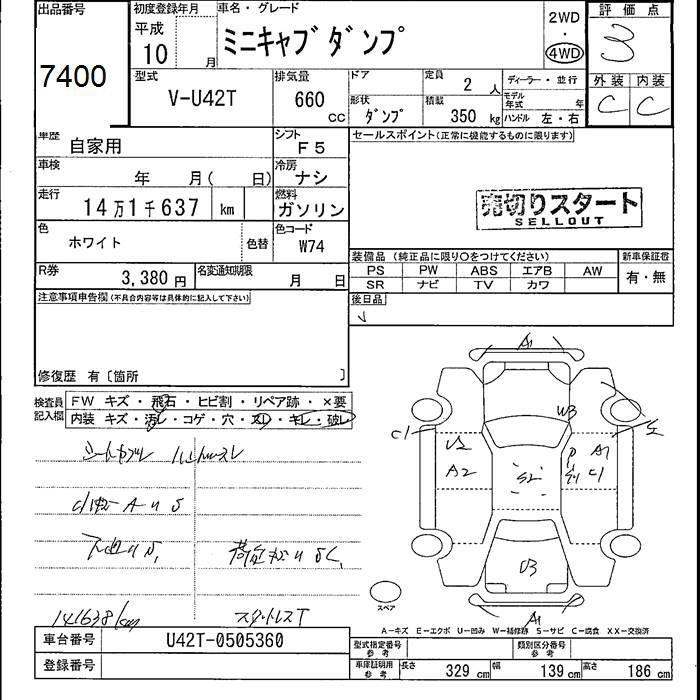 出品番号
7400
初度登録年月
平成
10 月
車名・グレード
ミニキャブダンプ
2WD
・
4WD
評価点
3
外装 内装
C C
型式
V-U42T
排気量
660 CC
ドア
定員
2 人
形状
ダンプ
積載
350 kg
ディーラー・並行
モデル年式 年
ハンドル 左・右
車歴
自家用
シフト
F5
セールスポイント(正常に機能するものに限ります)
車検
年 月( 日)
冷房
ナシ
走行
14万1千637 km
燃料
ガソリン
売切りスタート
SELLOUT
色
ホワイト
色替
色コード
W74
R券
3,380 円
名変通知期限
月 日
装備品 (純正品に限り○をつけてください)
PS PW ABS エアB AW
SR ナビ TV カワ
新車保証書
有・無
注意事項申告欄(不具合内容等は具体的に記入して下さい)
後日品
修復歴 有〔箇所 〕
検査員
記入欄
FW キズ・飛石・ヒビ割・リペア跡・×要
内装 キズ・汚レ・コゲ・穴・スレ・キレ・破レ
A1
W3
C1
U2
A2
S2
A1
C1
U3
A1
141638km
スタットレスT
スペア
A-キズ E-エクボ U-凹み W-補修跡 S-サビ C-腐食 XX-交換済
車台番号
U42T-0505360
登録番号
型式指定番号
参考
類別区分番号
参考
車庫証明用
参考
長さ 329 cm 幅 139 cm 高さ 186 cm